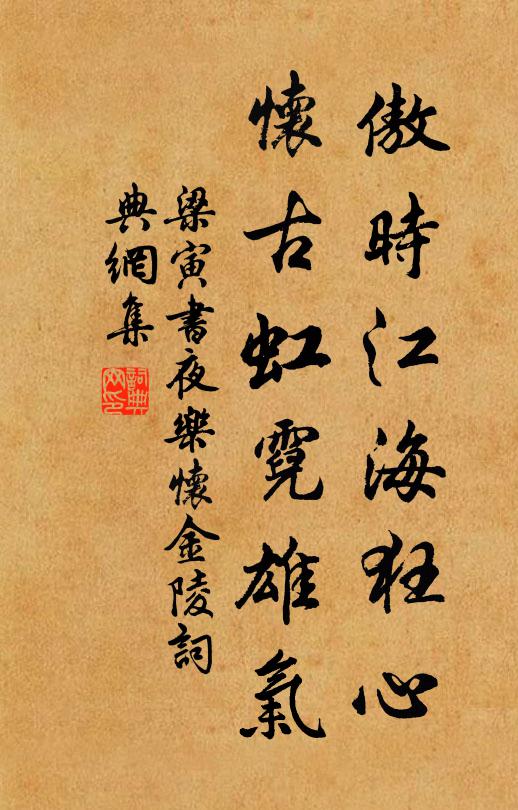 傲時江海狂心
懷古虹霓雄氣
梁寅書夜樂懷金陵詞
典網集
詞典
网印